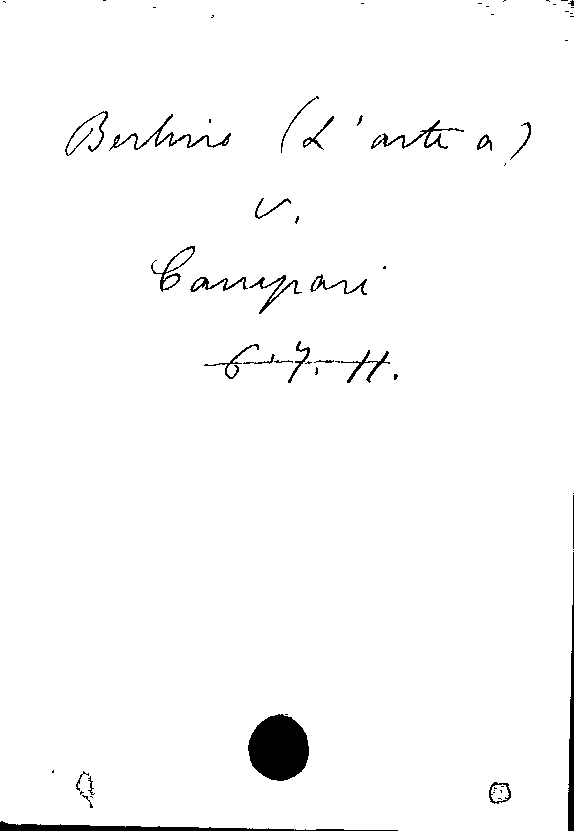 Berlino (L'arte a)
v.
Campari
6.7.11.